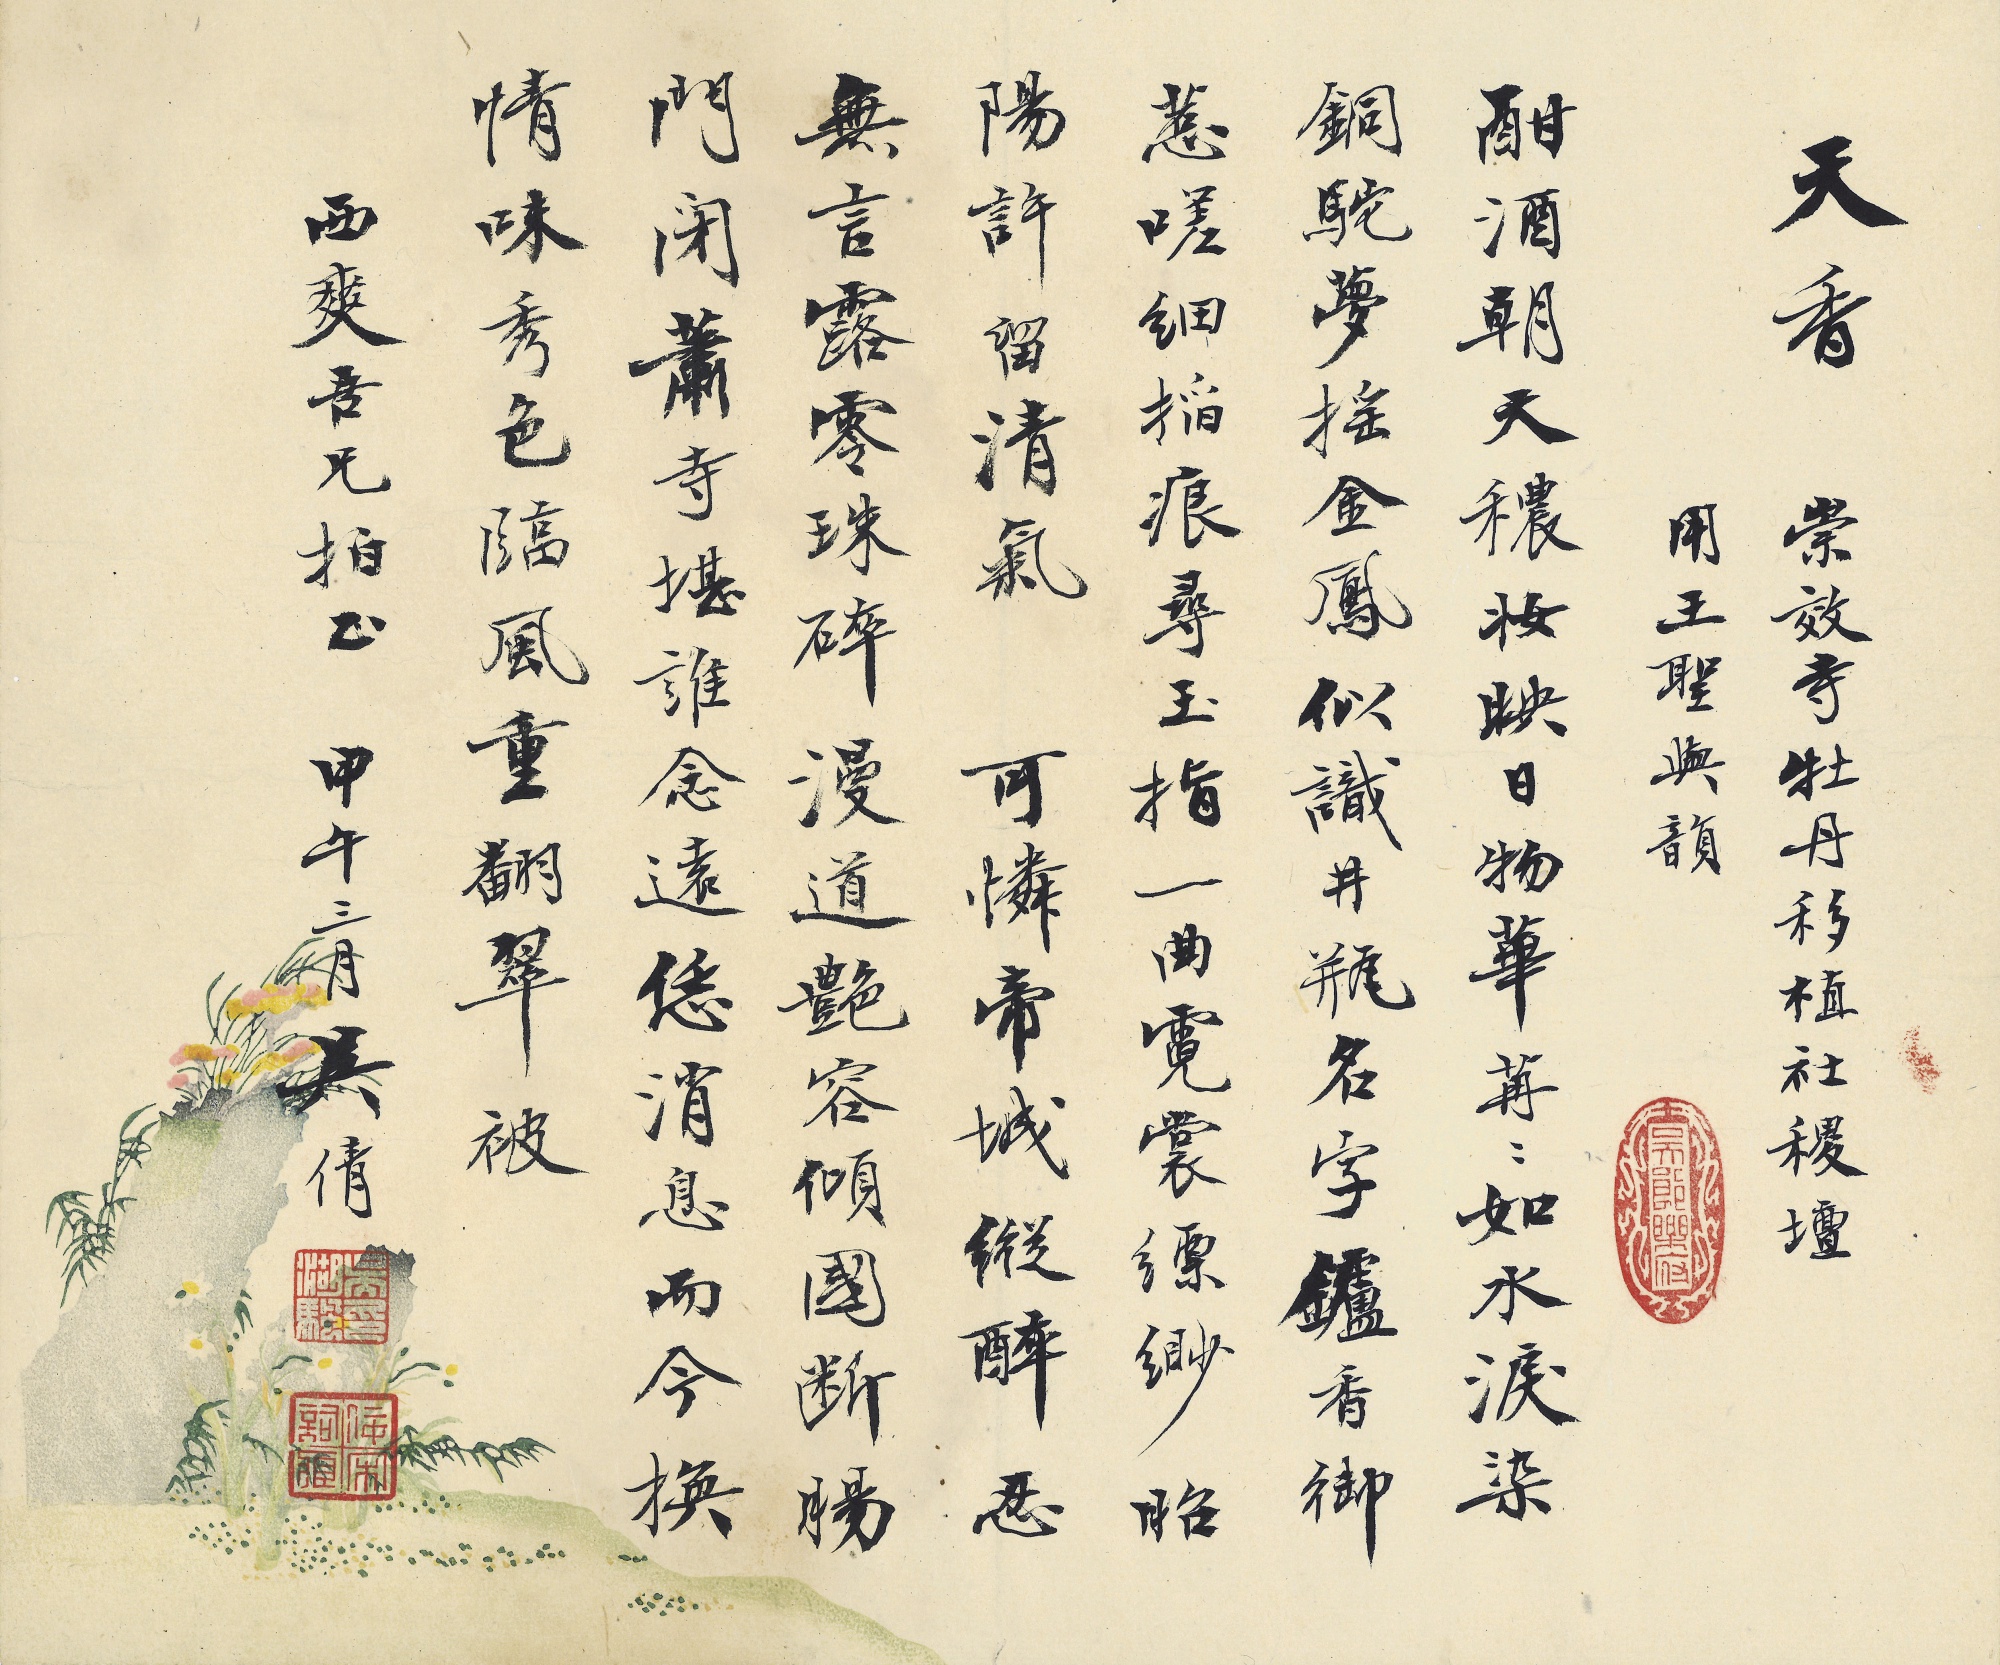 天香 崇效寺牡丹移植社稷壇
用王聖與韻
酣酒朝天穠妝映日物華苒〻如水淚染
銅駝夢搖金鳳似識井瓶名字鑪香御
惹嗟細搯痕尋玉指一曲霓裳縹緲昭
陽許留清氣 可憐帝城縱醉忍
無言露零珠碎漫道艷容傾國斷腸
門闭蕭寺堪誰念遠恁消息而今換
情味秀色臨風重翻翠被
西爽吾兄拍正 甲午三月 吳倩
吳印湖帆
佞宋詞痕